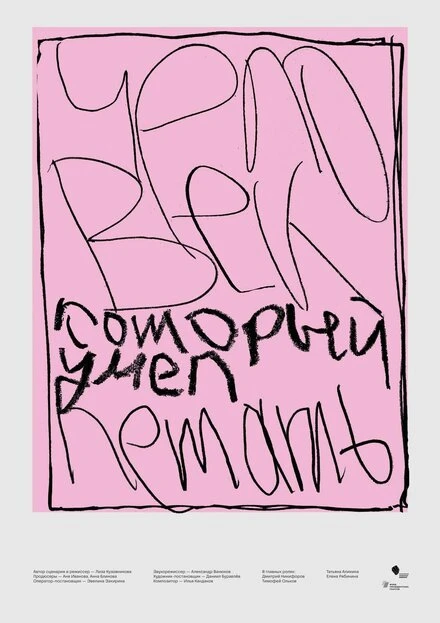 Чело
Век
который
умел
летать
Автор сценария и режиссер — Лиза
Продюсеры — Аня Иванова, Анна
Оператор-постановщик — Эвелина Закирина
Звукорежиссер — Александр
Художник-постановщик — Даниил Буравлёв
Композитор — Илья
В главных ролях:
Дмитрий Никифоров
Тимофей
Татьяна
Елена Рябинина